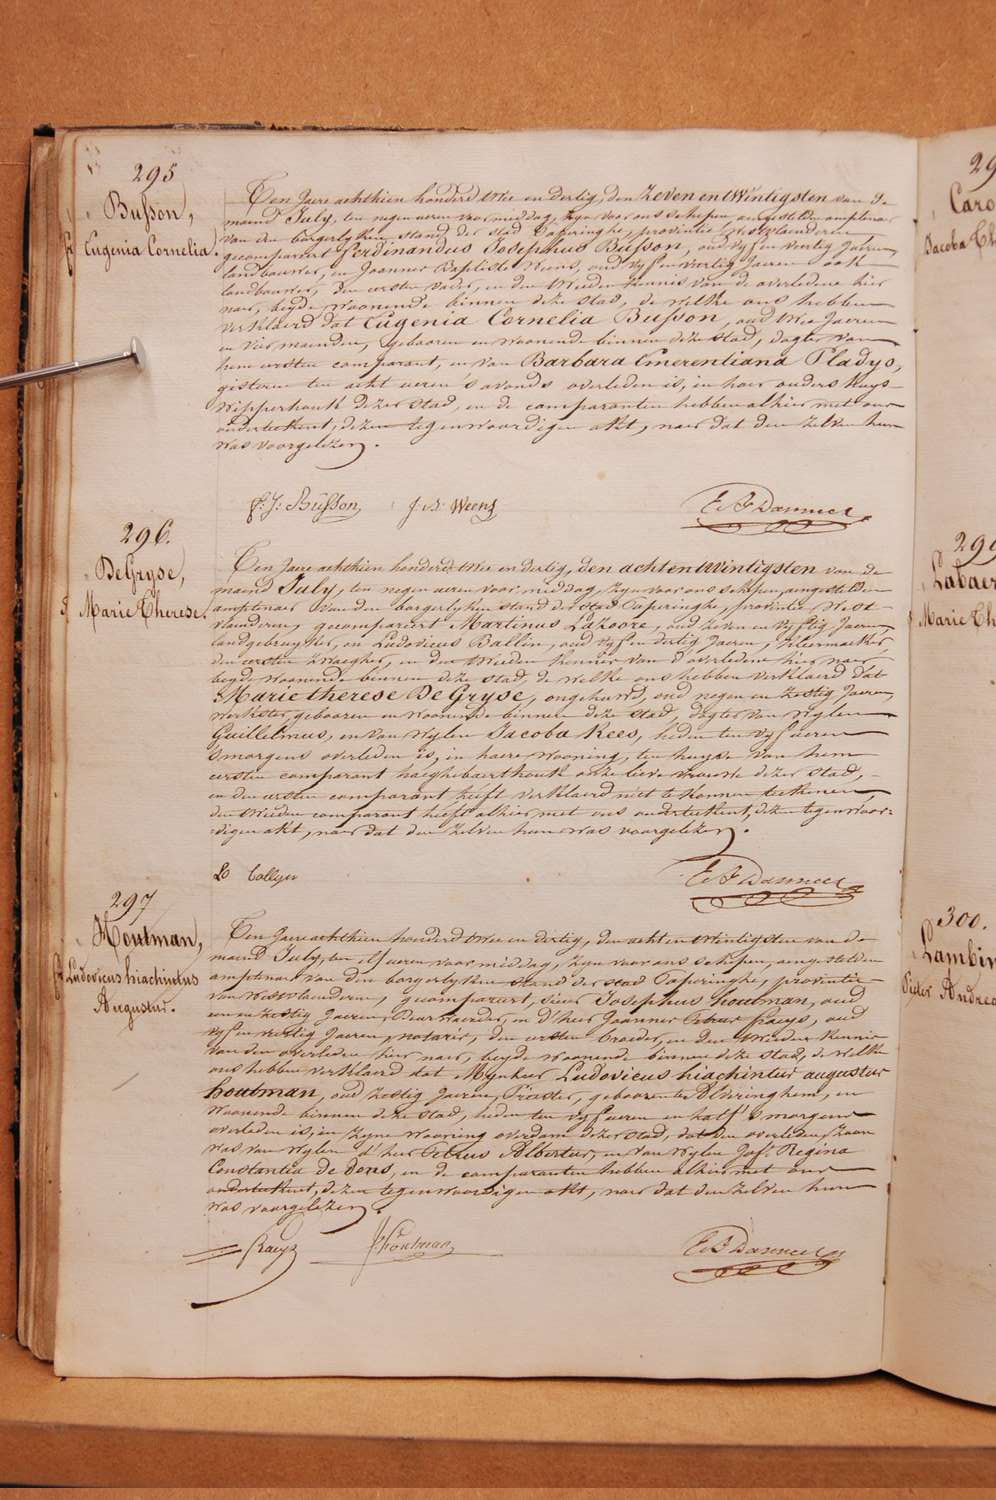 295
Busson,
Eugenia Cornelia.
Ten Jaere achthien honderd twee en dertig, den zeven en twintigsten van de
maend July, ten negen ueren voormiddag, zyn voor ons schepen aengestelden amptenaer
van den borgerlyken stand der stad Poperinghe, provintie Westvlaenderen
gecompareert Ferdinandus Josephus Busson, oud vyf en veertig Jaeren
landbouwer, en Joannes Baptiste Weens, oud vyf en veertig Jaeren ook
landbouwer, den eersten vader, en den tweeden kennis van de overledene hier
naer, beyde woonende binnen deze stad, de welke ons hebben
verklaerd dat Eugenia Cornelia Busson, oud twee Jaeren
en vier maenden, gebooren en woonende binnen deze stad, dogter van
hem eersten comparant, en van Barbara Emerentiana Pladys,
gisteren ten acht ueren s'avonds overleden is, in haer ouders huys
Wipperhouk dezer stad, en de comparanten hebben alhier met ons
onderteekent, dezen tegenwoordigen akt, naer dat den zelven hun
was voorgelezen.
F: J: Busson J. B. Weens
296.
DeGryse,
Marie Therese.
Ten Jaere achthien honderd twee en dertig, den achtentwintigsten van de
maend July, ten negen ueren voormiddag, zyn voor ons schepen, aengestelden
amptenaer van den borgerlyken stand der stad Poperinghe, provintie West-
vlaenderen, gecompareert Martinus Lahoore, oud zeven en vyftig Jaeren,
landgebruyker, en Ludovicus Ballin, oud vyf en dertig Jaeren,
den eersten zwaegher, en den tweeden kennis van d'overledene hier naer
beyde woonende binnen deze stad, de welke ons hebben verklaerd dat
Marie therese De Gryse, ongehuwd, oud negen en zestig Jaeren
werkster, gebooren en woonende binnen deze stad, dogter van wylen
Guillelmus, en van wylen Jacoba Rees, heden ten vyf ueren
s'morgens overleden is, in haere wooning, ten huyse van hem
eersten comparant haeghebaerthouk onze lieve vrouwe dezer stad,
en den eersten comparant heeft verklaerd niet te konnen teekenen,
den tweeden comparant heeft alhier met ons onderteekent, dezen tegenwoor-
digen akt, naer dat den zelven hun was voorgelezen.
297
Houtman,
Ludovicus hiachintus
Augustus.
Ten Jaere achthien honderd twee en dertig, den acht en twintigsten van de
maend July, ten elf ueren voormiddag, zyn voor ons schepen, aengestelden
amptenaer van den borgerlyken stand der stad Poperinghe, provintie
van Westvlaenderen, gecompareert, sieur Josephus houtman, oud
een en zestig Jaeren, en d'heer Joannes Petrus Fraeys, oud
vyf en veertig Jaeren, notaris, den eersten broeder, en den tweeden kennis
van den overleden hier naer, beyde woonende binnen deze stad, de welke
ons hebben verklaerd dat Mynheer Ludovicus hiachintus augustus
houtman, oud zestig Jaeren, Priester, gebooren te Alveringhem, en
woonende binnen deze stad, heden ten vyf ueren en half s'morgens
overleden is, in zyne wooning overdam dezer stad, dat den overleden, zoon
was van wylen d'heer Petrus Albertus, en van wylen Jof. Regina
Constantia de Dons, en de comparanten hebben alhier met ons
onderteekent, dezen tegenwoordigen akt, naer dat den zelven hun
was voorgelezen.
Fraeys J. Houtman
29
Caro
Jacoba Th
299
Labaer
Marie Th
300.
Lambin
Pieter Andrea